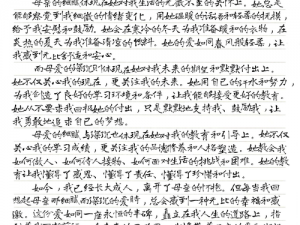 母亲的细腻体现在她对我生活的无微不至的关怀上。她总是
能够感受到我细微的情绪变化，用她温暖的话语和轻柔的抚摸，
给予我安慰和鼓励。她会在寒冷的冬天为我准备暖和的衣物，在
炎热的夏天为我准备清凉的饮料。她的爱如同春风般轻柔，让
我感到无比舒适和安心。
而母爱的深沉体现在她对我未来的期望和默默付出上。
她不仅关心我的现在，更关注我的未来。她用自己的汗水和努力，
为我创造了良好的学习环境和条件，让我能够接受更好的教育。
她从不要求我回报她的付出，只是默默地支持我、鼓励我，让
我勇敢地追求自己的梦想。
母爱的细腻与深沉也体现在她对我的教育和引导上。她不仅
关心我的学习成绩，更关注我的品德修养和人格塑造。她教会我
如何做人、如何待人接物、如何面对生活的挑战和困难。她的教
育让我懂得了感恩、懂得了责任、懂得了珍惜和付出。
如今，我已经长大成人，离开了母亲的怀抱。但每当我回
想起母亲那细腻而深沉的爱时，总会感到一种无比的幸福和感
激。这份爱如同一座永恒的丰碑，矗立在我人生的道路上，指